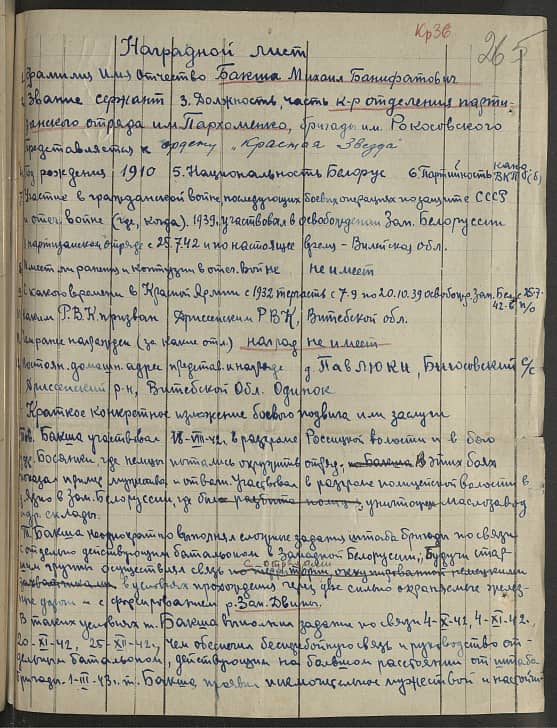 Кр36
26
Наградной лист
Фамилия Имя Отчество Бакша Михаил Банифатович
Звание сержант 3. Должность, часть к-р отделения парти-
занского отряда им. Пархоменко, бригады им. Рокосовского
представляется к ордену „Красная Звезда"
Год рождения 1910 5. Национальность Белорус 6 Партийность канд. ВКП(б)
Участие в гражданской войне, последующих боевых операциях по защите СССР
и отеч. войне (где, когда). 1939, участвовал в освобождении Зап. Белоруссии
В партизанском отряде с 25.7.42 и по настоящее время - Вилейская обл.
Имеет ли ранения и контузии в отеч. войне не имеет
С какого времени в Красной Армии с 1932 тер.часть с 7-9 по 20.10.39 освобожд. Зап. Бел. с 25-7-42 п/о
Каким Р.В.К. призван Дриссенским РВК, Витебской обл.
Чем ранее награжден (за какие отл) наград не имеет
Постоян. домашн. адрес представ. к награде д Павлюки, Бигосовский с/с
Дриссенский р-н, Витебской Обл. Одинок
Краткое конкретное изложение боевого подвига или заслуги
Тов. Бакша участвовал 18-VIII-42г. в разгроме Россицкой волости и в бою
где немцы пытались окружить отряд. В этих боях
показал пример мужества и отваги. Участвовал в разгроме полицейской волости в
в Зап. Белоруссии, где был уничтожен маслозавод
и склады.
Т. Бакша неоднократно выполнял сложные задания штаба бригады по связи
с отдельно действующим батальоном в Западной Белоруссии, будучи стар-
шим группы осуществлял связь с отрядами
в условиях прохождения через две сильно охраняемые желез-
ные дороги и с форсированием р. Зап. Двины.
В таких условиях т. Бакша выполнил задание по связи 4-X-42, 4-XI-42,
20-XI-42, 25-XII-42, чем обеспечил бесперебойную связь и руководство от-
дельным батальоном, действующим на большом расстоянии от штаба
бригады. 1-III-43г. т. Бакша проявил исключительное мужество и